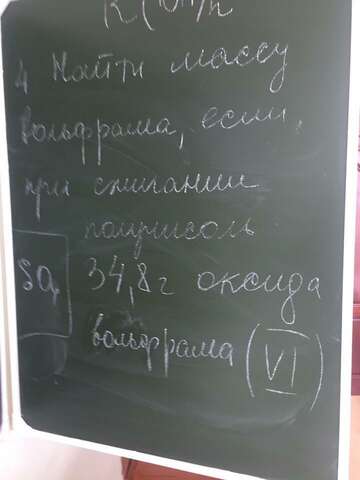 K(OH)n
4 Найти массу
вольфрама, если,
при сжигании
получисоль
SO₄ 34,8г оксида
вольфрама (VI)